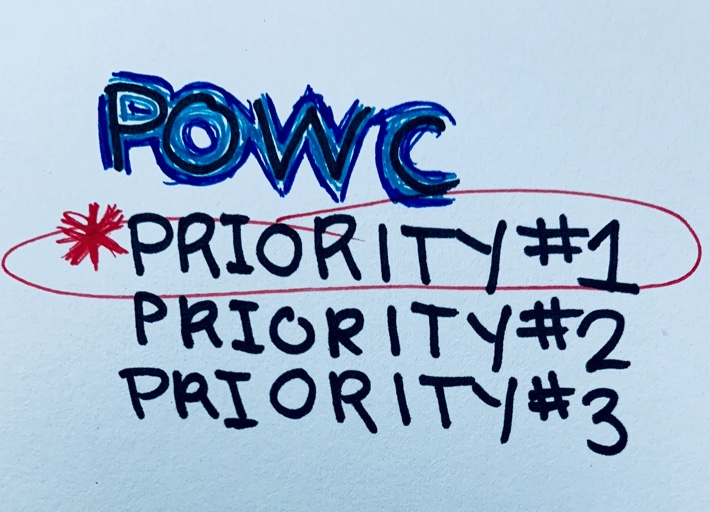 POWC
*PRIORITY #1
PRIORITY #2
PRIORITY #3